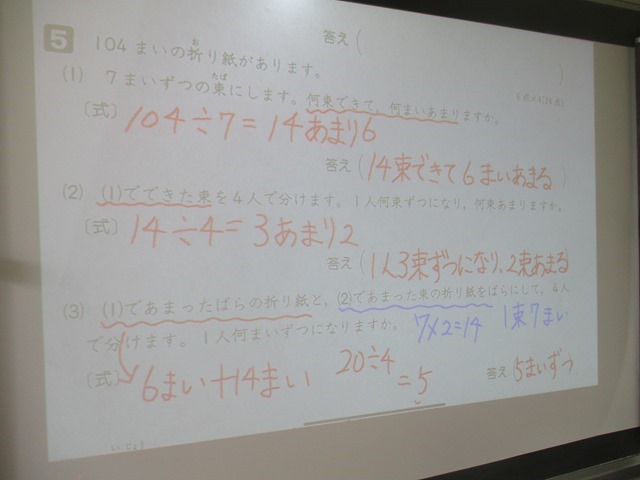 答え(　　　)
5 104まいの折り紙があります。
(1) 7まいずつの束にします。何束できて、何まいあまりますか。
〔式〕 104÷7=14あまり6
答え(14束できて6まいあまる)
(2) (1)でできた束を4人で分けます。1人何束ずつになり、何束あまりますか。
〔式〕 14÷4=3あまり2
答え(1人3束ずつになり、2束あまる)
(3) (1)であまったばらの折り紙と、(2)であまった束の折り紙をばらにして、4人
で分けます。1人何まいずつになりますか。 7×2=14 1束7まい
〔式〕 6まい+14まい 20÷4
=5
答え 5まいずつ